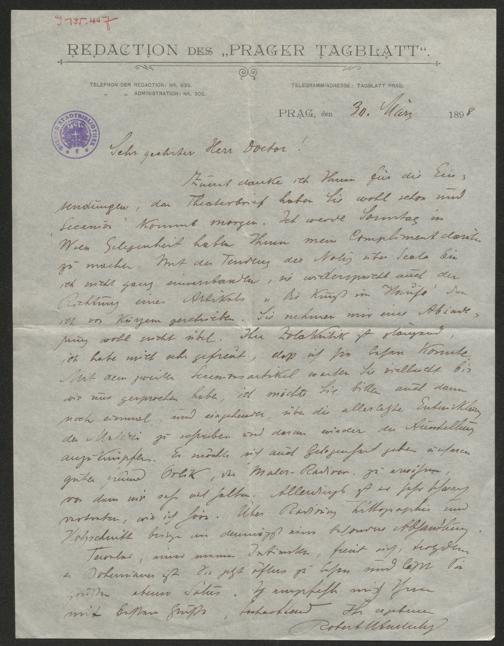 J 135.407
REDACTION DES „PRAGER TAGBLATT“.
TELEPHON DER REDACTION: NR. 630.
„ „ ADMINISTRATION: NR. 305.
TELEGRAMMADRESSE: TAGBLATT PRAG.
PRAG, den 30. März 1898
Sehr geehrter Herr Doctor!
Zuerst danke ich Ihnen für die Ein-
sendungen, den Theaterbrief haben Sie wohl schon und
kommt morgen. Ich werde Sonntag in
Wien Gelegenheit haben Ihnen mein Compliment darüber
zu machen. Mit der Tendenz der Notiz über Scala bin
ich nicht ganz einverstanden, sie widerspricht auch der
Richtung eines Artikels „Die Kunst im den
ich vor Kurzem geschrieben. Sie nehmen mir eine Abände-
rung wohl nicht übel. Ihre Zolakritik ist glänzend,
ich habe mich sehr gefreut, dass ich sie lesen konnte.
Mit dem zweiten Secessionsartikel warten Sie vielleicht bis
wir uns gesprochen haben, ich möchte Sie bitten auch dann
noch einmal und eingehender über die allerletzte Entwicklung
der Malerei zu schreiben und daran wieder die Ausstellung
anzuknüpfen. Es möchte sich auch Gelegenheit geben unseren
guten Freund Orlik, den Maler-Radirer zu erwähnen,
von dem wir sehr viel halten. Allerdings ist er sehr
vertreten, wie ich höre. Über Radirung Lithographie und
Holzschnitt bringe ich demnächst eine besondere Abhandlung.
einer meiner Intimsten, freut sich, trotzdem
er Bohemianer ist Sie jetzt öfters zu lesen und lässt Sie
grüßen ebenso Salus. Ich empfehle mich Ihnen
mit besten Grüßen, Ihr ergebener
Robert